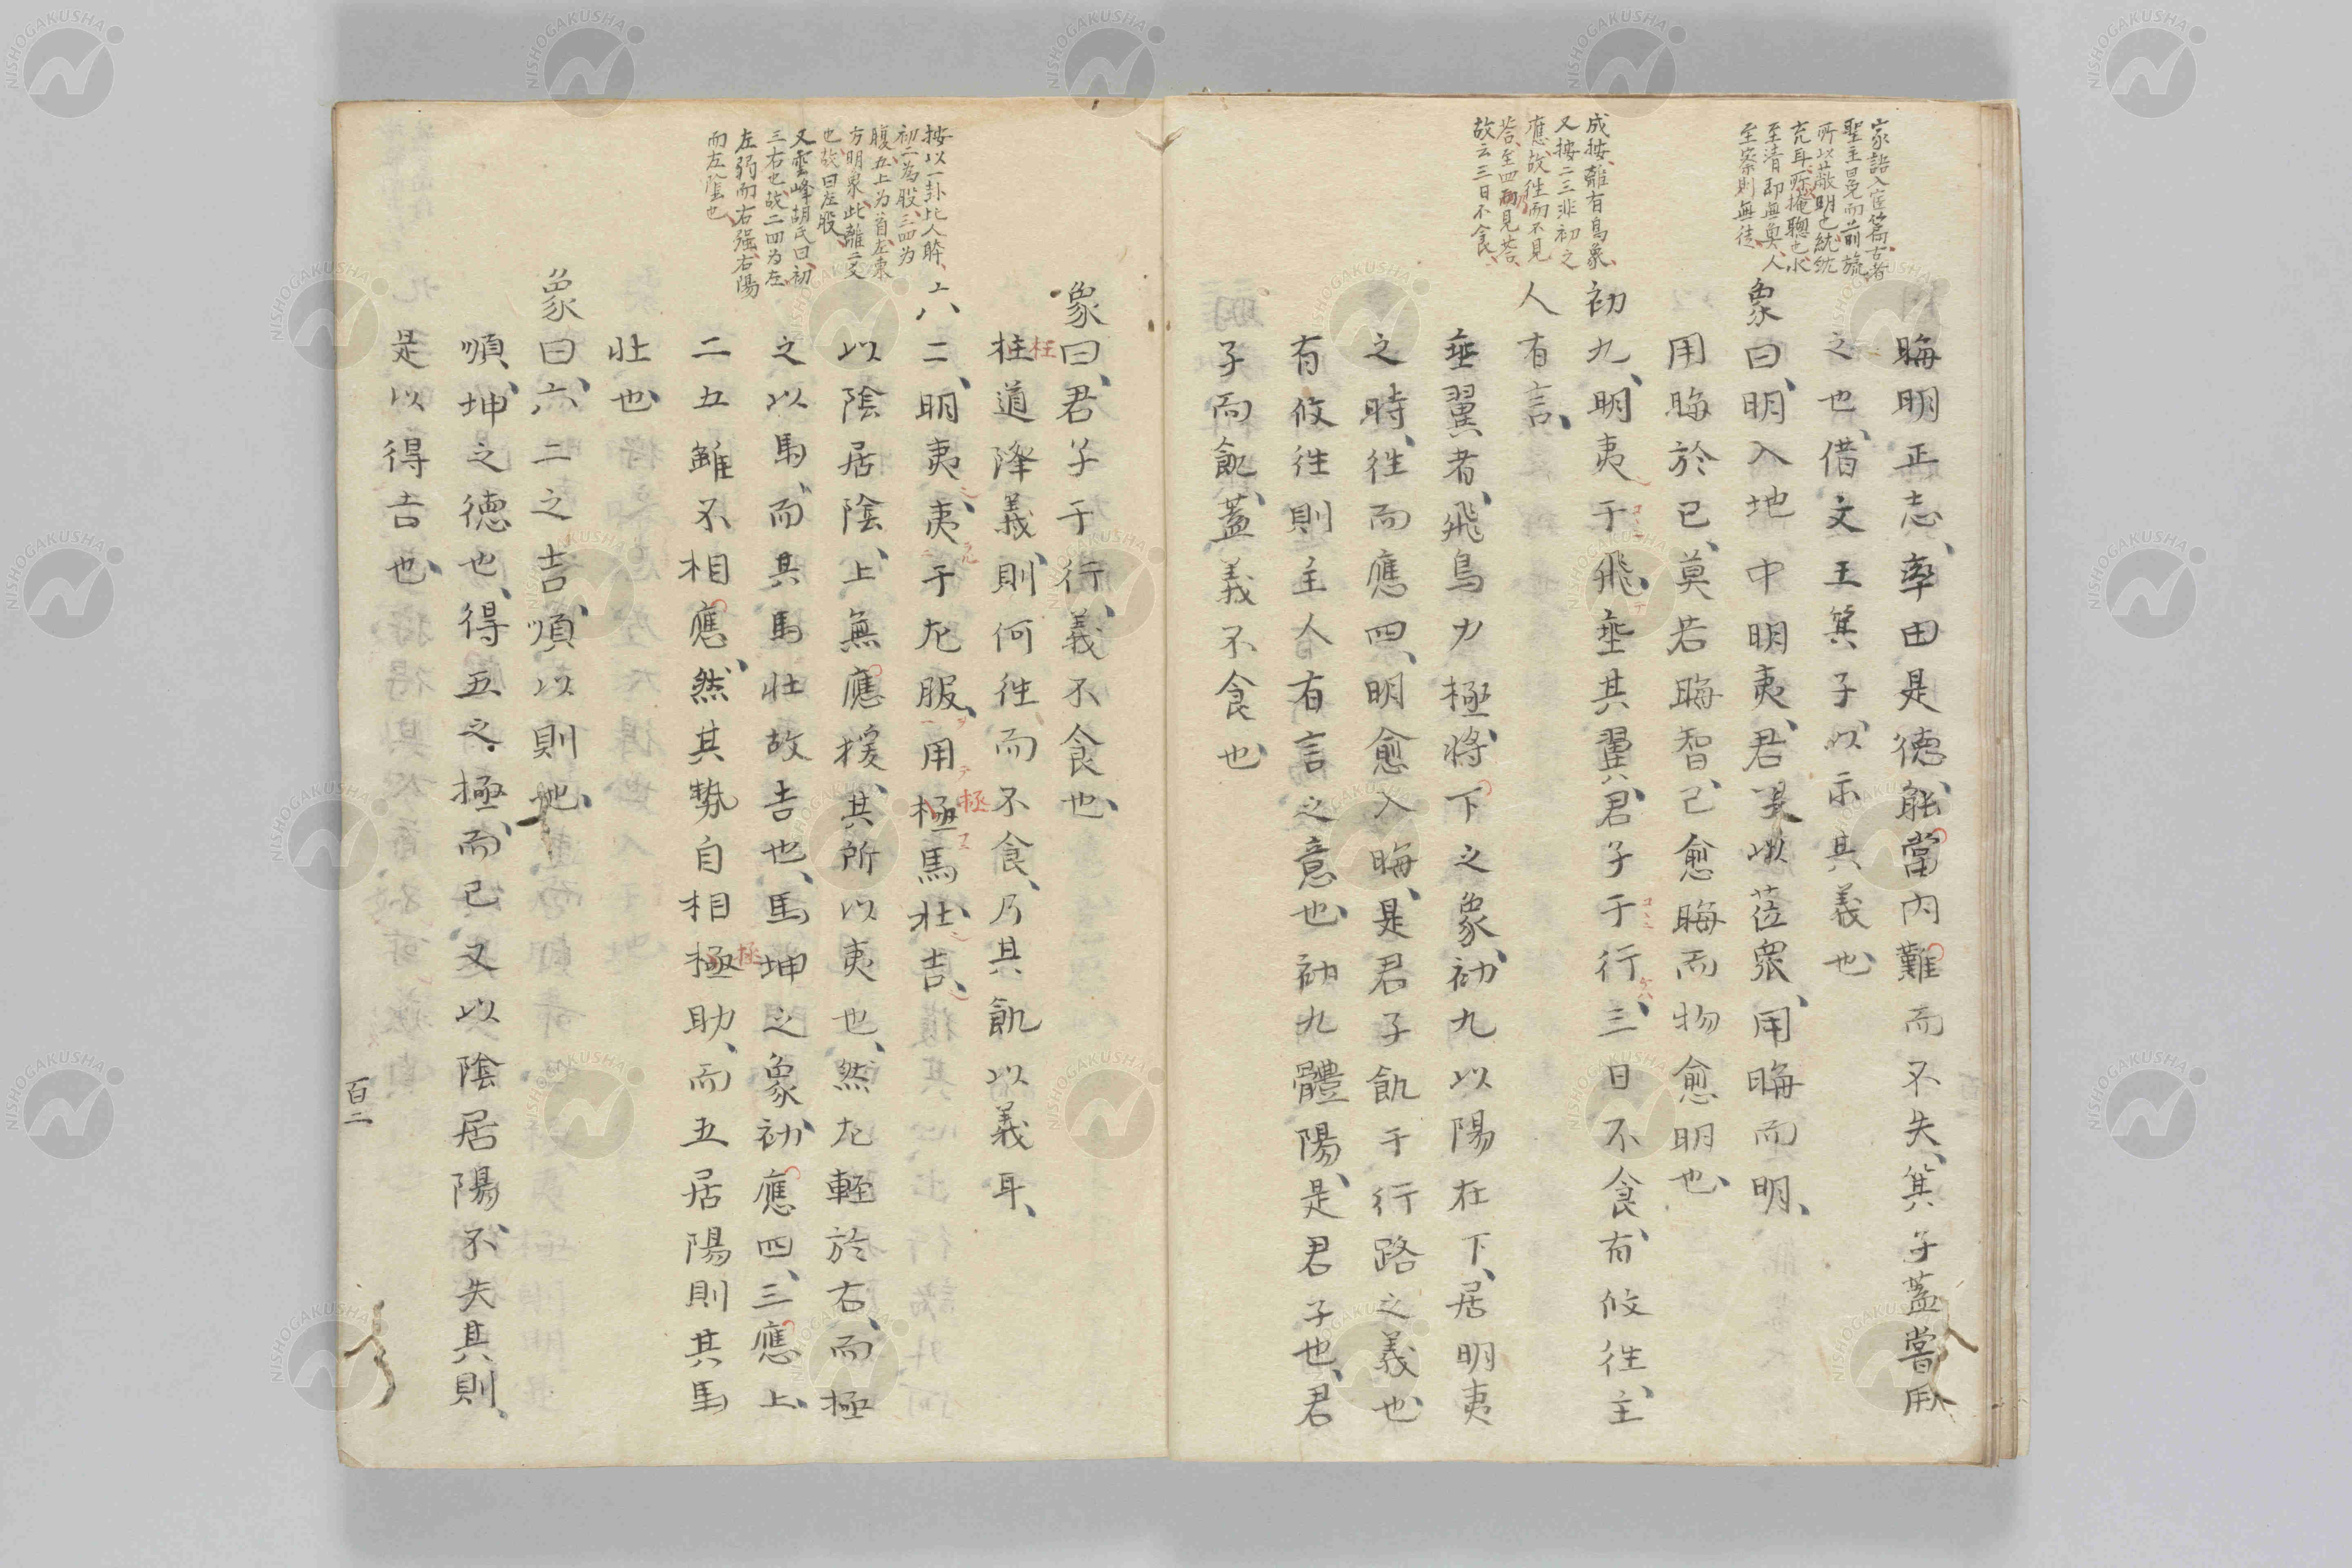 家語入官篇古者
聖主冕而前旒
所以蔽明也紞紞
充耳所以掩聰也水
至清即無魚人
至察則無徒
晦明正志率由是德能當内難而不失箕子蓋嘗用
之也借文王箕子以示其義也
象曰明入地中明夷君子以莅衆用晦而明
用晦於已莫若晦智已愈晦而物愈明也
成按離有鳥象
又按二三非初之
應故往而不見
荅至四而見荅
故云三日不食
初九明夷于飛垂其翼君子于行三日不食有攸往主
人有言
垂翼者飛鳥力極將下之象初九以陽在下居明夷
之時往而應四明愈入晦是君子飢于行路之義也
有攸往則主人有言之意也初九體陽是君子也君
子而飢蓋義不食也
象曰君子于行義不食也
枉道降義則何往而不食乃其飢以義耳
按以一卦比人體
初二為股三四為
腹五上為首左東
方明象此離二爻
也故曰左股
又雲峰胡氏曰初
三右也故二四為左
左弱而右強右陽
而左陰也
六二明夷夷于左股用極馬壯吉
以陰居陰上無應援其所以夷也然左輕於右而極
之以馬而其馬壯故吉也馬坤之象初應四三應上
二五雖不相應然其勢自相極助而五居陽則其馬
壯也
象曰六二之吉順以則也
順坤之德也得五之極而已又以陰居陽不失其則
是以得吉也
百二